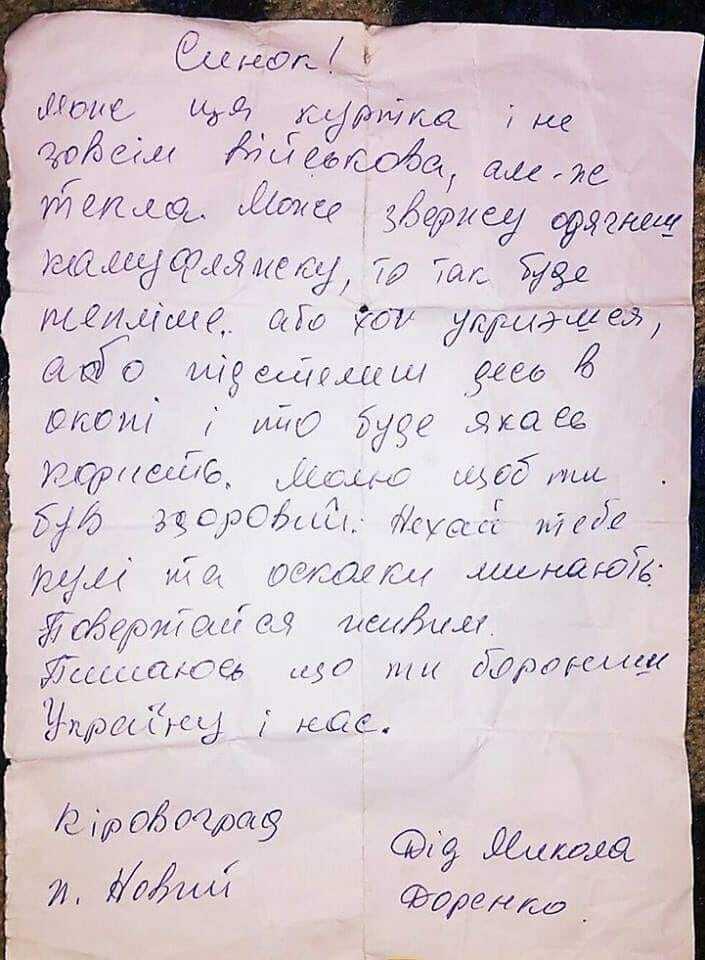 Синок!
Може ця куртка і не
зовсім військова, але-же
тепла. Може зверху одягнеш
камуфляжку, то так буде
тепліше. або хоч укриэшся,
або підстелиш десь в
окопі і то буде якась
користь. Молю щоб ти
був здоровий. Нехай тебе
кулі та осколки минають.
Повертайся живим.
Пишаюсь що ти борониш
Україну і нас.
Кіровоград
п. Новий
Дід Микола
Доренко